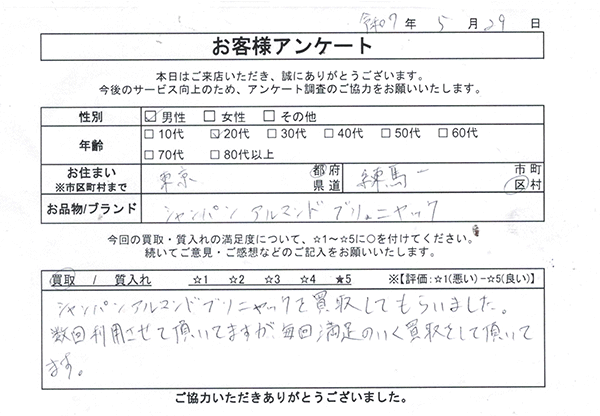 令和7年 5月29日
お客様アンケート
本日はご来店いただき、誠にありがとうございます。
今後のサービス向上のため、アンケート調査のご協力をお願いいたします。
性別 ☑男性 □女性 □その他
年齢 □10代 ☑20代 □30代 □40代 □50代 □60代
□70代 □80代以上
お住まい
※市区町村まで 東京 都府県道 練馬 市町区村
お品物/ブランド シャンパン アルマンド ブリニャック
今回の買取・質入れの満足度について、☆1～☆5に○を付けてください。
続いてご意見・ご感想などのご記入をお願いいたします。
買取 / 質入れ ☆1 ☆2 ☆3 ☆4 ★5 ※【評価:☆1(悪い)－☆5(良い)】
シャンパンアルマンドブリニャックを買収してもらいました。
数回利用させて頂いてますが、毎回満足のいく買収をして頂いて
ます。
ご協力いただきありがとうございました。